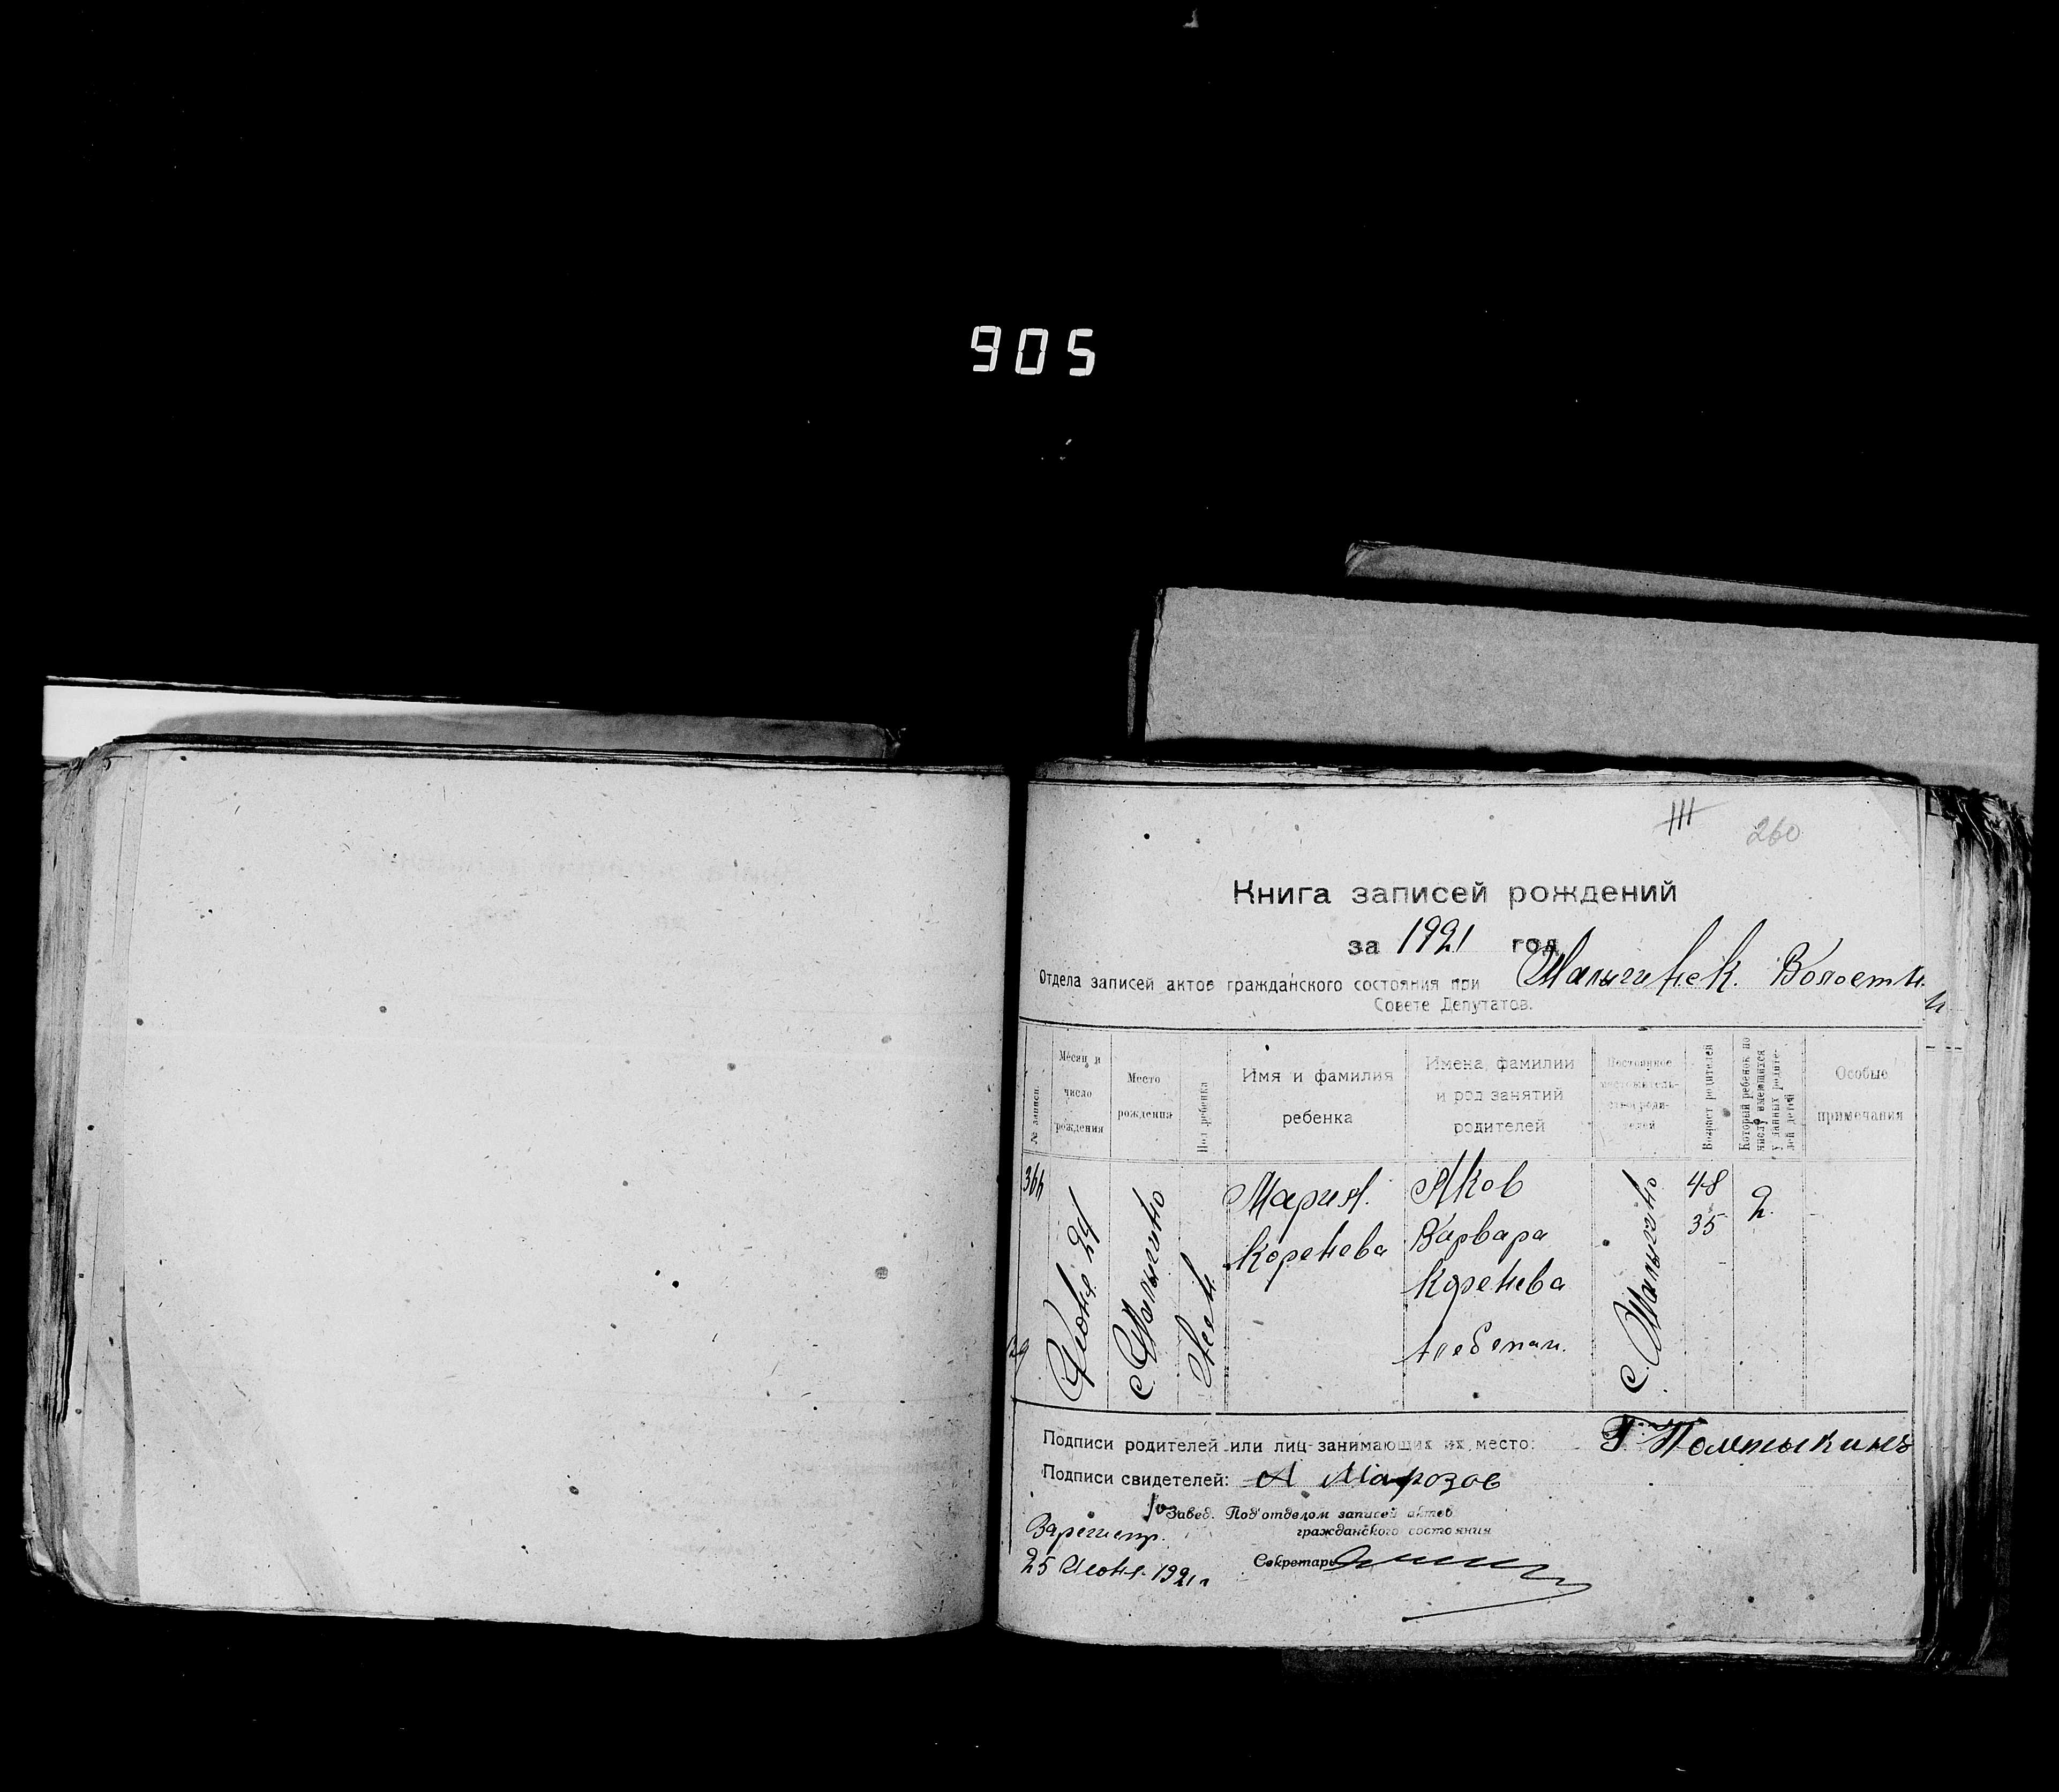 905
III
260
Книга записей рождений
за 1921 год
Отдела записей актов гражданского состояния при Малыгинск. Волостн.
Совете Депутатов.
№ записи.
Месяц и число рождения
Место рождения
Пол ребенка
Имя и фамилия ребенка
Имена, фамилии и род занятий родителей
Постоянное местожительство родителей
Возраст родителей
Который ребенок по числу имеющихся у данных родителей детей
Особые примечания
Июня 24
с. Малыгино
Жен.
Мария.
Коренева
Яков
Варвара
Коренева
хлебопаш.
с. Малыгино
48
35
2.
Подписи родителей или лиц занимающих их место:
Подписи свидетелей: А Марозов
Завед. Под'отделом записей актов
гражданского состояния
Зарегистр.
25 Июня 1921 г
Секретарь